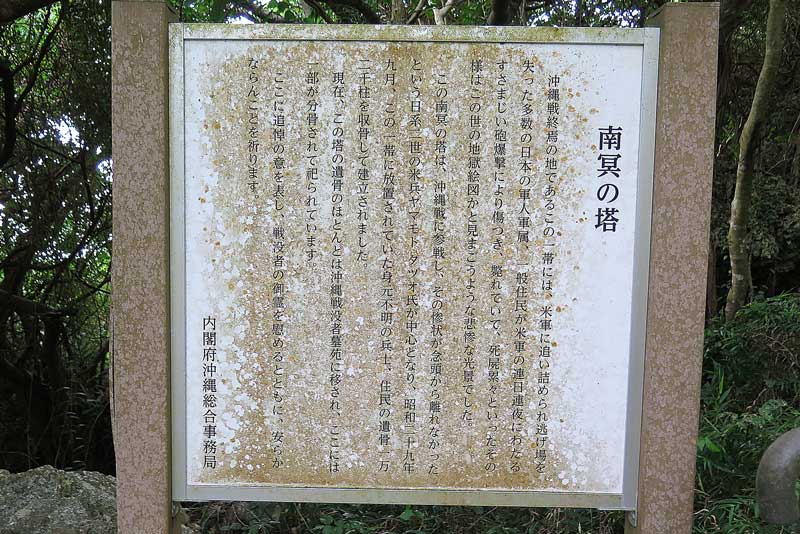 南冥の塔
沖縄戦終焉の地であるこの一帯には、米軍に追い詰められ逃げ場を
失った多数の日本の軍人軍属、一般住民が米軍の連日連夜にわたる
すさまじい砲爆撃により傷つき、斃れていて、死屍累々といったその
様はこの世の地獄絵図かと見まごうような悲惨な光景でした。
この南冥の塔は、沖縄戦に参戦し、その惨状が念頭から離れなかった
という日系二世の米兵ヤマモト・タツオ氏が中心となり、昭和二十九年
九月、この一帯に放置されていた身元不明の兵士、住民の遺骨一万
二千柱を収骨して建立されました。
現在、この塔の遺骨のほとんどは沖縄戦没者墓苑に移され、ここには
一部が分骨されて祀られています。
ここに追悼の意を表し、戦没者の御霊を慰めるとともに、安らか
ならんことを祈ります。
内閣府沖縄総合事務局